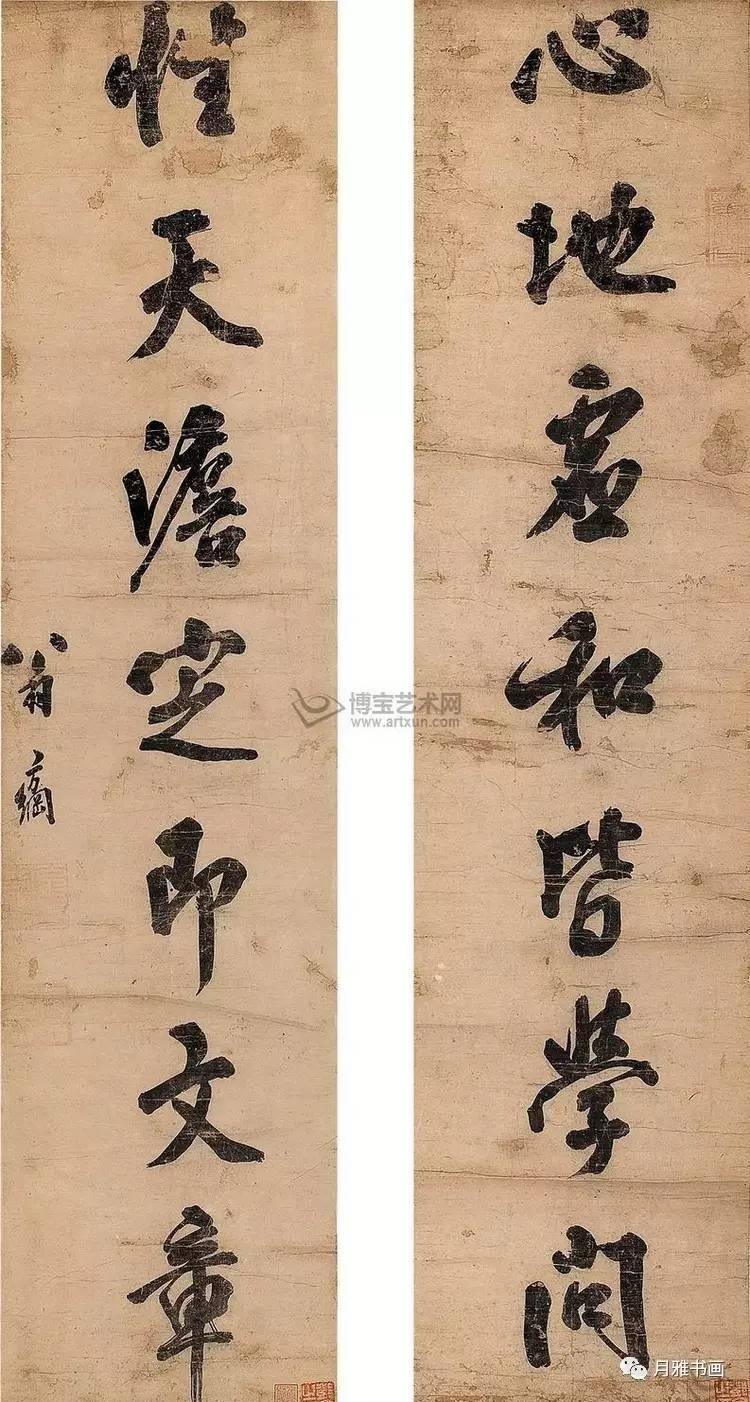 心地虚和皆學問
性天澹定即文章
翁方綱
博宝艺术网
www.artxun.com
月雅书画